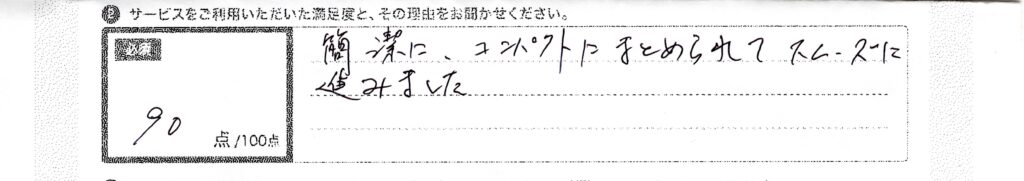 ❷ サービスをご利用いただいた満足度と、その理由をお聞かせください。
必須
90 点/100点
簡潔に、コンパクトにまとめられてスムーズに
進みました